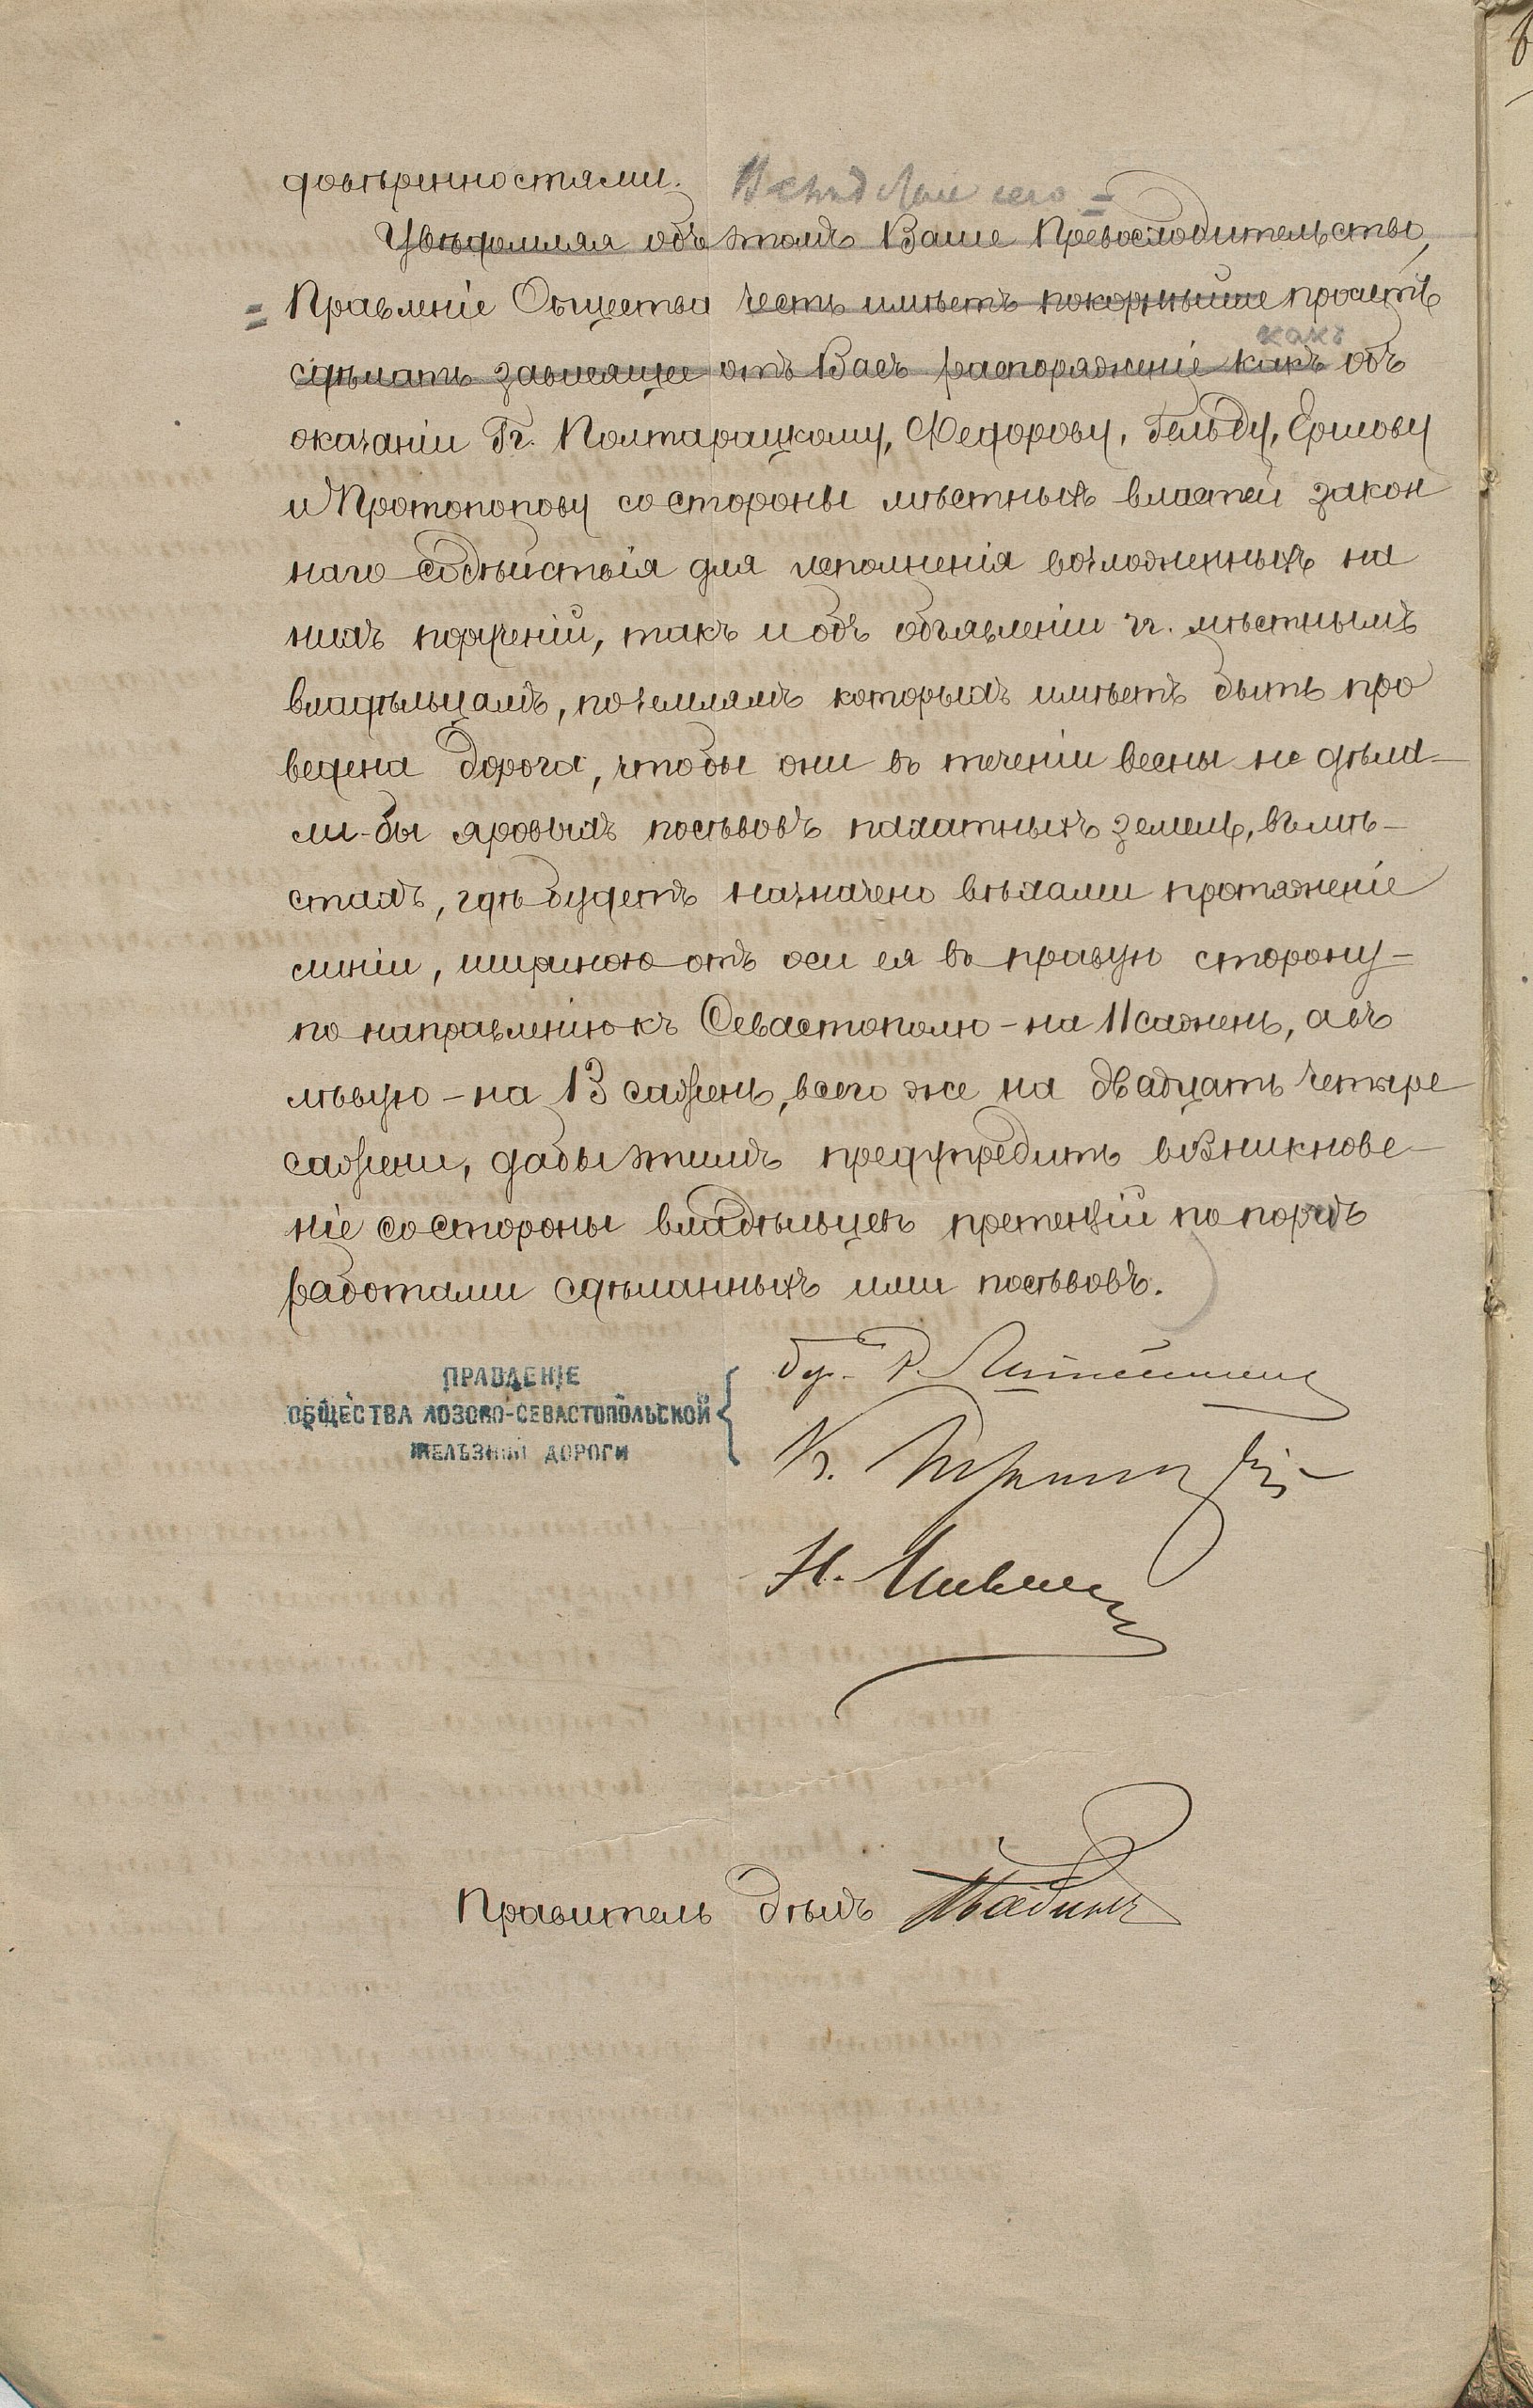 довѣренностями. Вслѣдствіе сего =
Увѣдомляя объ этомъ Ваше Превосходительство,
= Правленіе Общества честь имѣетъ покорнѣйше просить
какъ
сдѣлать зависящее отъ Васъ распоряженіе какъ объ
оказаніи Гг. Полтарацкому, Федорову, Гельду, Ершову
и Протопопову со стороны мѣстныхъ властей закон
наго содѣйствія для исполненія возложенныхъ на
нихъ порученій, такъ и объ объявленіи гг. мѣстнымъ
владѣльцамъ, по землямъ которыхъ имѣетъ быть про
ведена дорога, чтобы они въ теченіи весны не дѣла-
ли-бы яровыхъ посѣвовъ пахатныхъ земель, въ мѣ-
стахъ, гдѣ будетъ назначено вѣхами протяженіе
линіи, шириною отъ оси ея въ правую сторону-
по направленію къ Севастополю - на 11 сажень, а въ
лѣвую - на 13 сажень, всего же на двадцать четыре
сажени, дабы этимъ предупредить возникнове-
ніе со стороны владѣльцевъ претензій по порчѣ
работами сдѣланныхъ ими посѣвовъ.
ПРАВЛЕНІЕ
ОБЩЕСТВА ЛОЗОВО-СЕВАСТОПОЛЬСКОЙ
ЖЕЛѢЗНОЙ ДОРОГИ
К.
Н.
Правитель дѣлъ